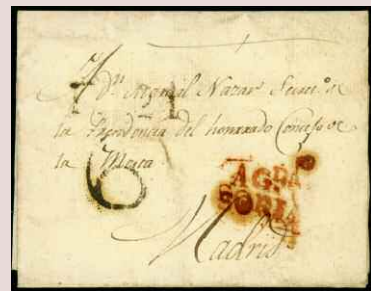 A Dn. Miguel Nazar. Secreo. de
la Presidencia del honrrado Concejo de
la Mesta
6
AGDA
SORIA
Madrid